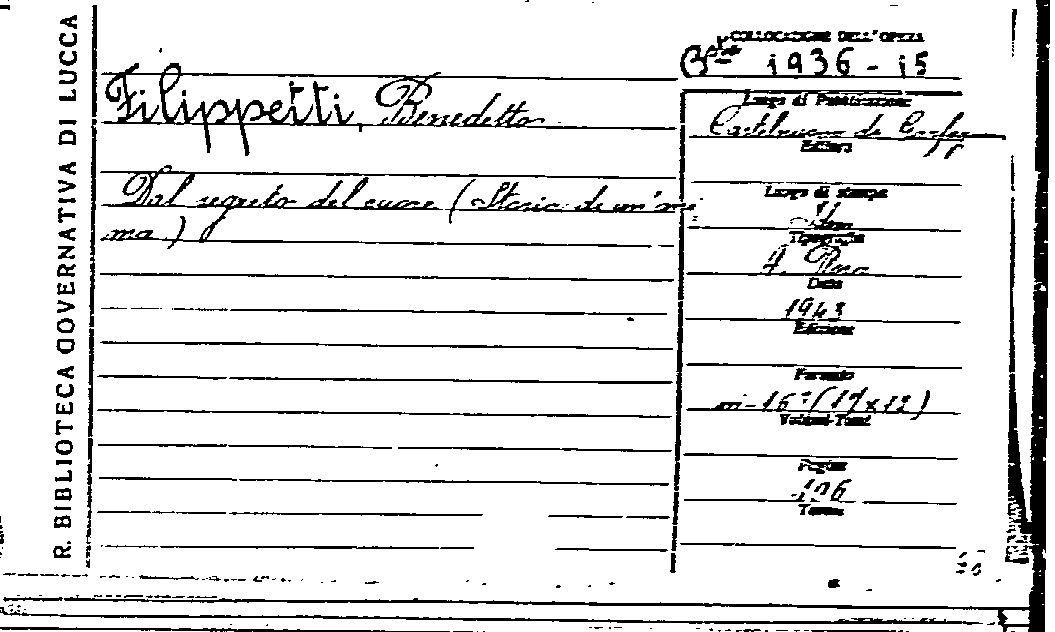 R. BIBLIOTECA GOVERNATIVA DI LUCCA
COLLOCAZIONE DELL'OPERA
1936 - 15
Filippetti, Benedetto
Luogo di Pubblicazione
Castelnuovo di
Editore
Dal segreto del cuore (Storia di un'ani
ma)
Luogo di stampa
Tipografia
A.
Data
1943
Edizione
Formato
in-16° (17x12)
Volumi-Tomi
Pagine
106
Tavole